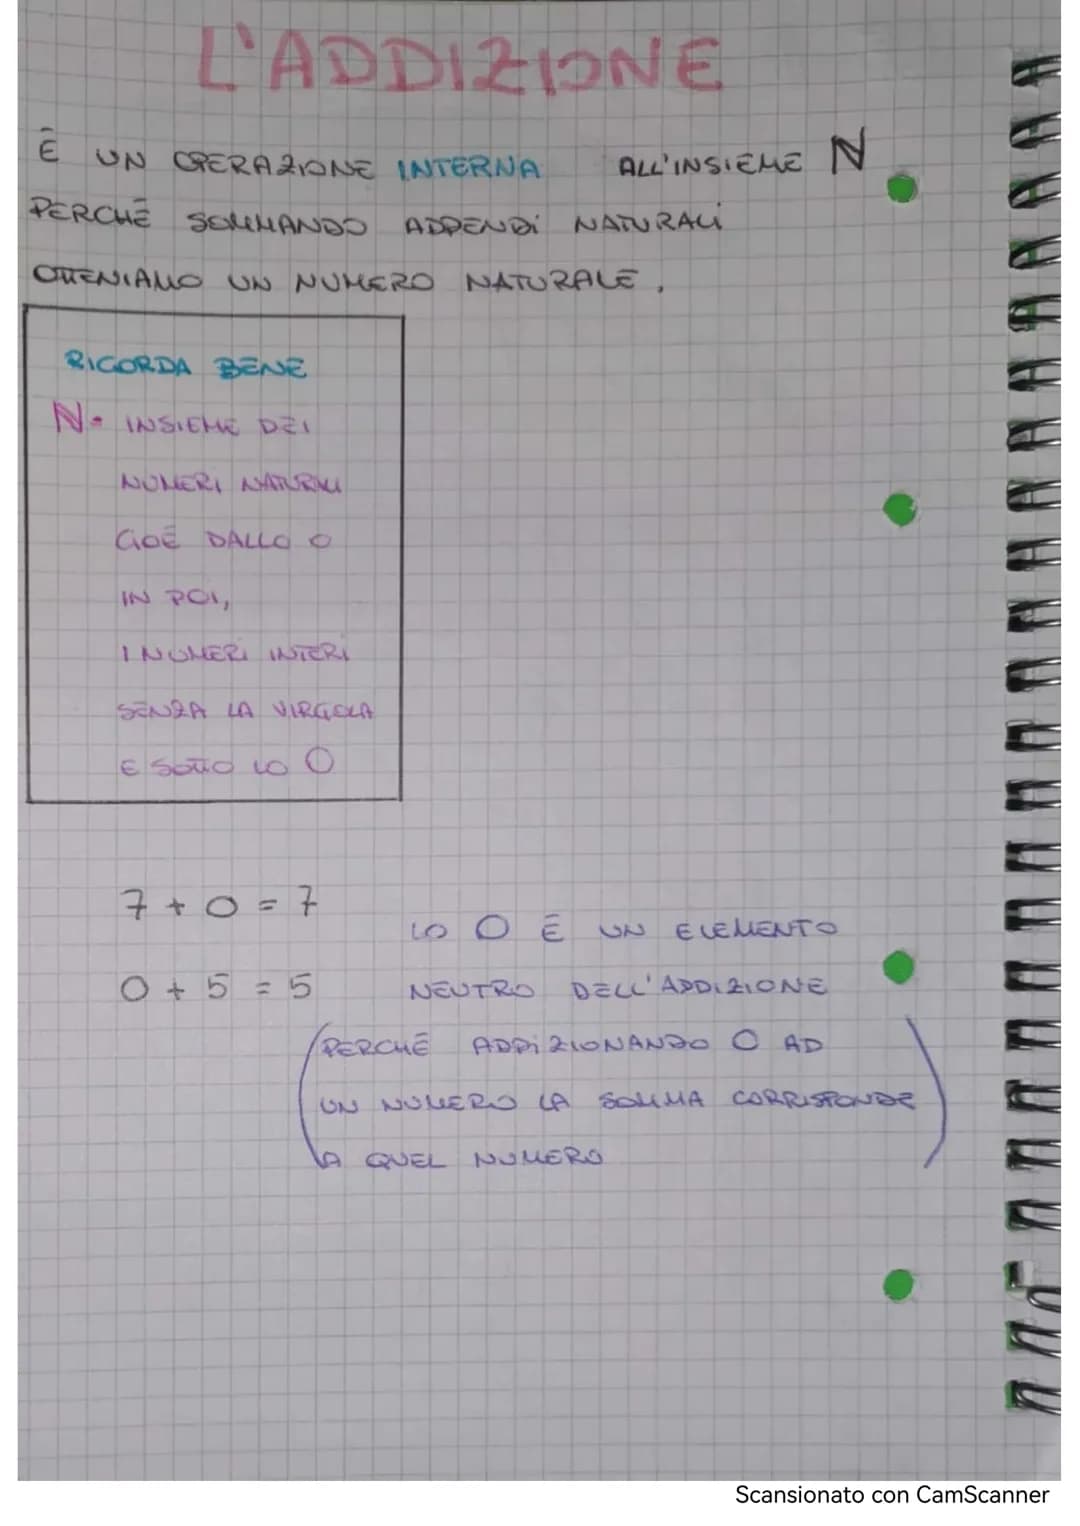 L'ADDIZIONE
È UN OPERAZIONE INTERNA ALL'INSIEME N
PERCHÉ SOMMANDO ADDENDI NATURALI
OTTENIAMO UN NUMERO NATURALE.
RICORDA BENE
N= INSIEME DEI
NUMERI NATURALI
CIOÈ DALLO 0
IN POI,
I NUMERI INTERI
SENZA LA VIRGOLA
E SOTTO LO 0
7 + 0 = 7
LO 0 È UN ELEMENTO
0 + 5 = 5 NEUTRO DELL'ADDIZIONE
(PERCHÉ ADDIZIONANDO 0 AD
UN NUMERO LA SOMMA CORRISPONDE
A QUEL NUMERO)
Scansionato con CamScanner